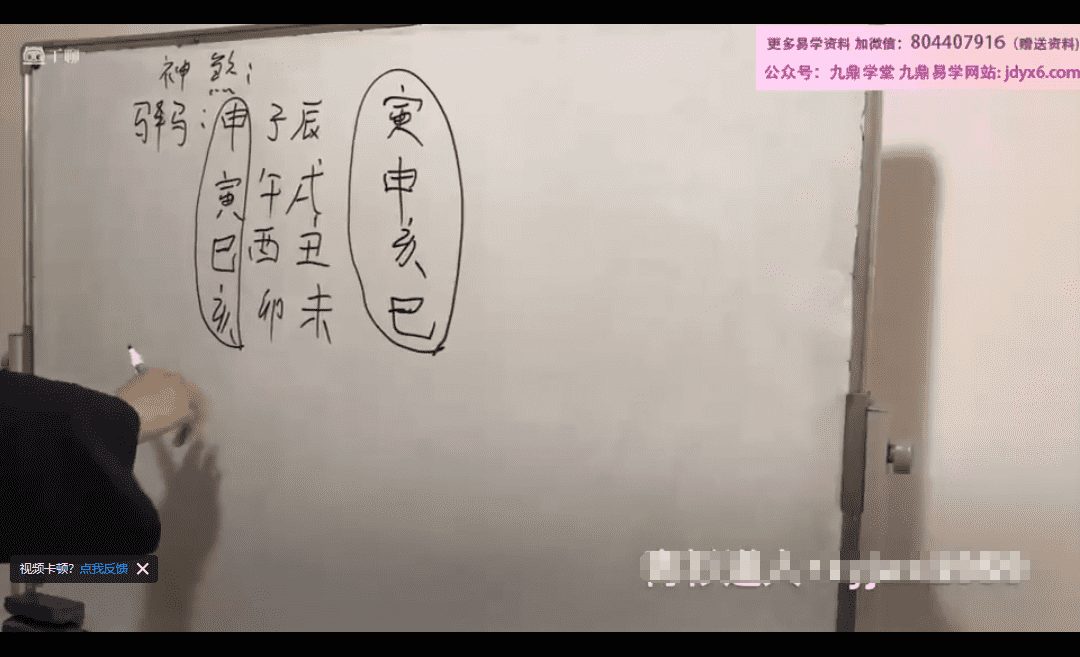 千聊
更多易学资料 加微信：804407916（赠送资料）
公众号：九鼎学堂 九鼎易学网站: jdyx6.com
神煞：
驿马：申子辰 寅
寅午戌 申
巳酉丑 亥
亥卯未 巳
视频卡顿？点我反馈